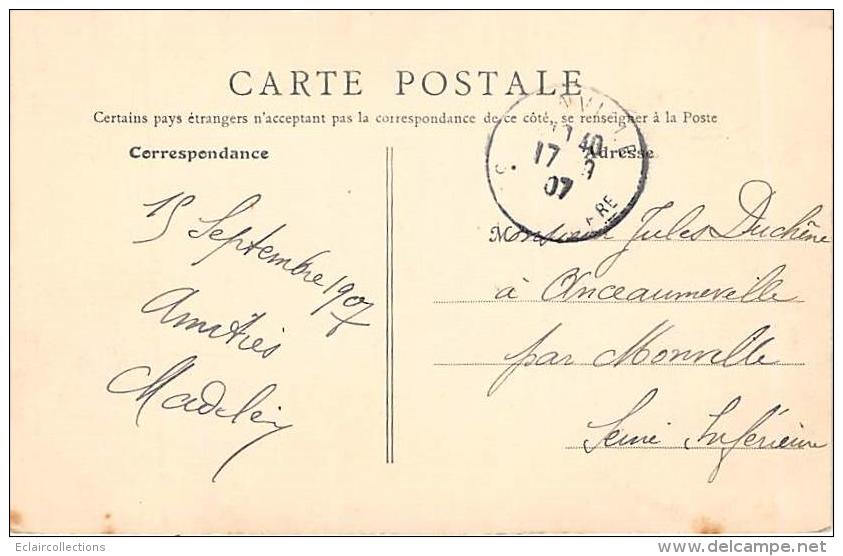 CARTE POSTALE
Certains pays étrangers n'acceptent pas la correspondance de ce côté, se renseigner à la Poste
Correspondance
Adresse
15 Septembre 1907
Amitiés
Madelein
17 9
07
Monsieur Jules Duchêne
à Anceaumeville
par Monville
Seine Inférieure
Eclaircollections
www.delcampe.net